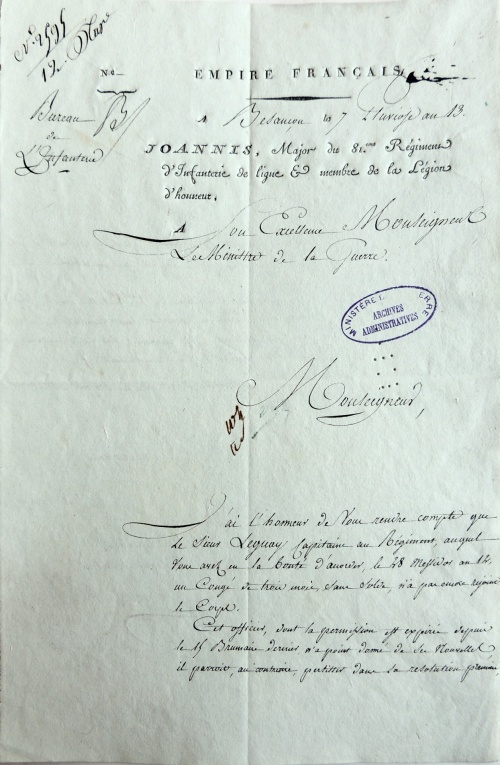 N.° 2595
12
N.°
EMPIRE FRANÇAIS
Bureau
de
L'Infanterie
B
A Besançon le 7 Pluviose an 13.
JOANNIS, Major du 81.me Régiment
d'Infanterie de ligne & membre de la Légion
d'honneur,
A Son Excellence Monseigneur
Le Ministre de la Guerre.
MINISTÈRE ERRE
ARCHIVES
ADMINISTRATIVES
Monseigneur,
J'ai l'honneur de Vous rendre compte que
le Sieur Lequay Capitaine au Régiment, auquel
Vous avez eu la bonté d'accorder, le 28 Messidor an 12,
un Congé de trois mois, sans solde, n'a pas encore rejoint
le Corps.
Cet officier, dont la permission est expirée depuis
le 15 Brumaire dernier n'a point donné de ses Nouvelles
il paroit, au contraire, persister dans sa resolution premiere,